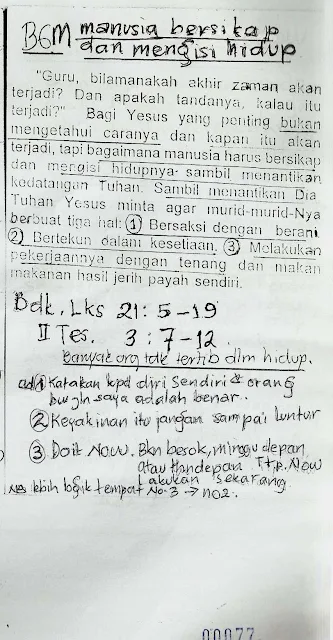 BGM manusia bersikap
dan mengisi hidup
"Guru, bilamanakah akhir zaman akan
terjadi? Dan apakah tandanya, kalau itu
terjadi?" Bagi Yesus yang penting bukan
mengetahui caranya dan kapan itu akan
terjadi, tapi bagaimana manusia harus bersikap
dan mengisi hidupnya sambil menantikan
kedatangan Tuhan. Sambil menantikan Dia
Tuhan Yesus minta agar murid-murid-Nya
berbuat tiga hal: 1 Bersaksi dengan berani.
2 Bertekun dalam kesetiaan. 3 Melakukan
pekerjaannya dengan tenang dan makan
makanan hasil jerih payah sendiri.
Bdk. Lks 21: 5-19
II Tes. 3: 7-12
Banyak org tdk tertib dlm hidup.
ad/1 Katakan kpd diri sendiri & orang
bwgln saya adalah benar.
2 Keyakinan itu jangan sampai luntur
3 Doit Now. Bkn besok, minggu depan
atau thn depan. Ttp. Now
Lakukan sekarang
NB lebih baik tempat No. 3 → no2.
00077